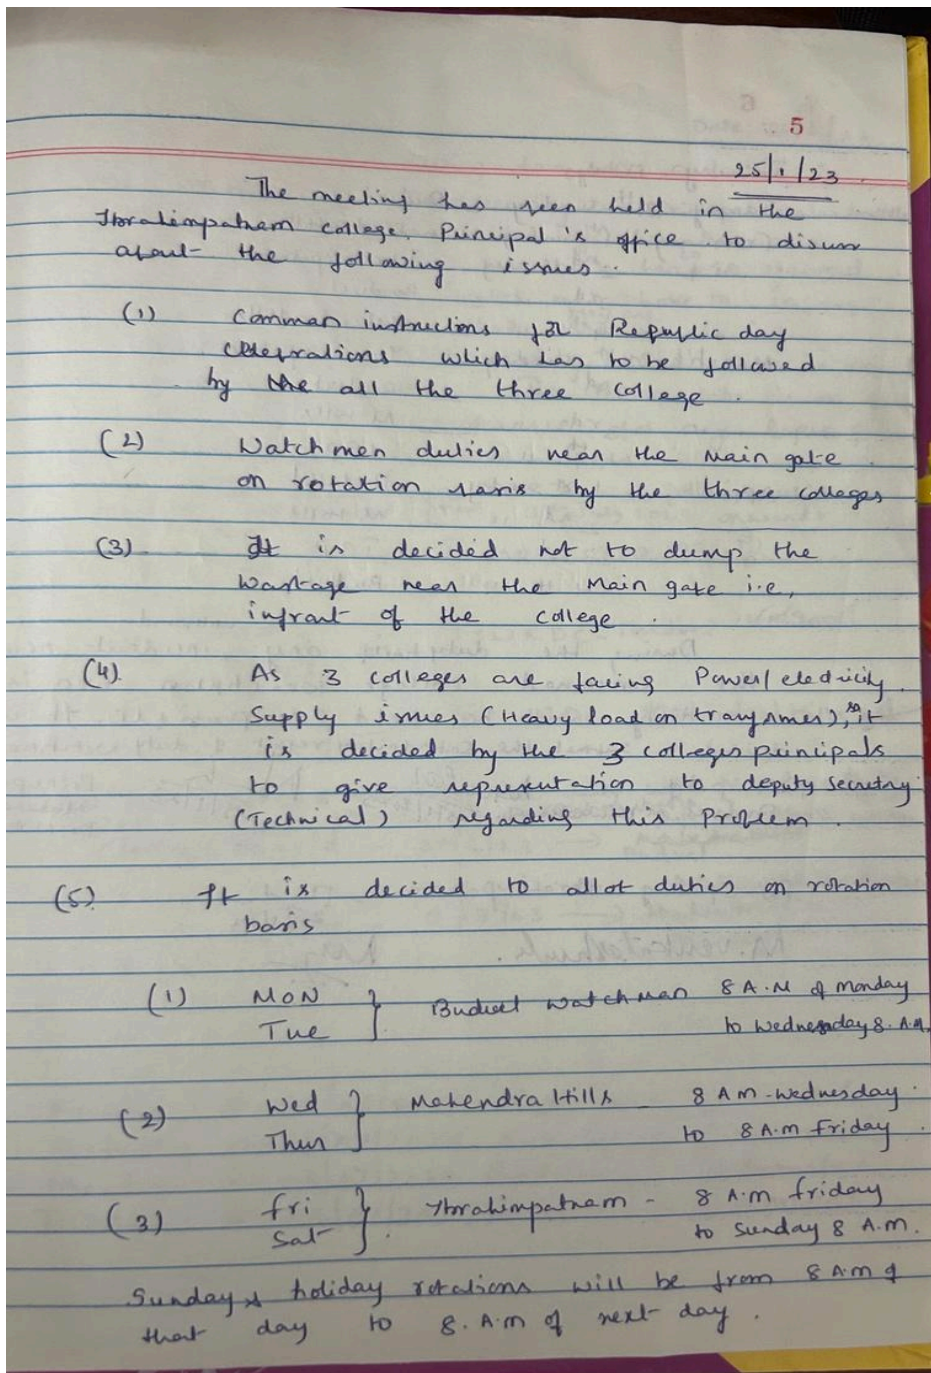 5
25/1/23
The meeting has been held in the
Ibrahimpatnam college, Principal's office to discuss
about the following issues.
(1) Common instructions for Republic day
celebrations which has to be followed
by the all the three college.
(2) Watchmen duties near the main gate
on rotation basis by the three colleges
(3) It is decided not to dump the
wastage near the main gate i.e,
infront of the college.
(4). As 3 colleges are facing Power/electricity
Supply issues (Heavy load on ), so it
is decided by the 3 colleges principals
to give representation to deputy Secretary
(Technical) regarding this Problem.
(5). It is decided to allot duties on rotation
basis
(1) MON
Tue } watchman 8 A.M of Monday
to Wednesday 8. A.M.
(2) Wed
Thur } Mahendra Hills - 8 AM - Wednesday
to 8 A.m Friday.
(3) fri
Sat } Ibrahimpatnam - 8 A.m friday
to Sunday 8 A.m.
Sunday & holiday rotations will be from 8 A.m of
that day to 8. A.m of next day.